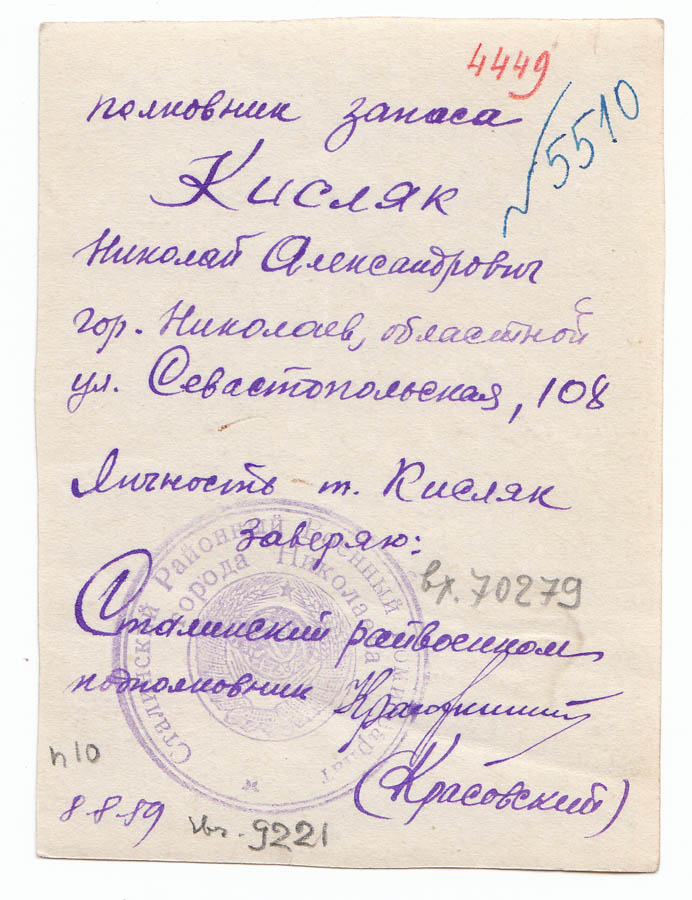 4449
№5510
полковник запаса
Кисляк
Николай Александрович
гор. Николаев, областной
ул. Севастопольская, 108
Личность т. Кисляк
заверяю:
Сталинский Районный Военный Комиссариат
города Николаева
вх. 70279
Сталинский райвоенком
подполковник
(Красовский)
п10
8-8-59
9221